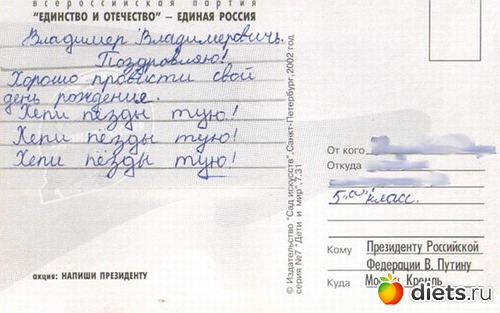 всероссийская партия
"ЕДИНСТВО И ОТЕЧЕСТВО" – ЕДИНАЯ РОССИЯ
Владимер Владимеровичь.
Поздровляю!
Хорошо провисти свой
день рождения.
Хепи пёзды тую!
Хепи пёзды тую!
Хепи пёзды тую!
акция: НАПИШИ ПРЕЗИДЕНТУ
© Издательство "Сад искусств", Санкт-Петербург, 2002 год
серия №7 "Дети и мир", 7.31
От кого
Откуда
5 "а" класс.
Кому Президенту Российской
Федерации В. Путину
Куда Москва, Кремль
diets.ru